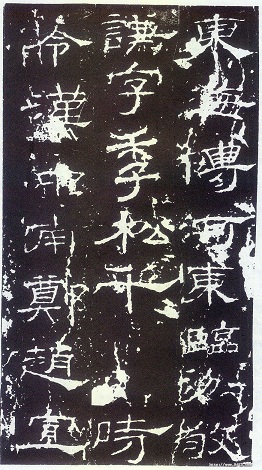 東海傅河東臨汾敬
謙字季松千時
令漢中南鄭趙宣